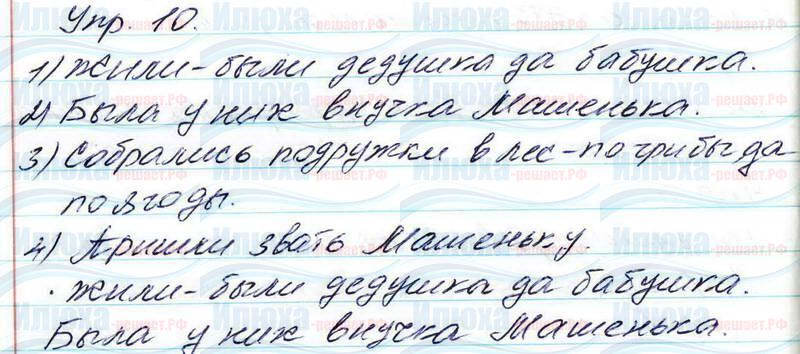 Упр. 10.
1) Жили-были дедушка да бабушка.
2) Была у них внучка Машенька.
3) Собрались подружки в лес - по грибы да
по ягоды.
4) Пришли звать Машеньку.
Жили-были дедушка да бабушка.
Была у них внучка Машенька.